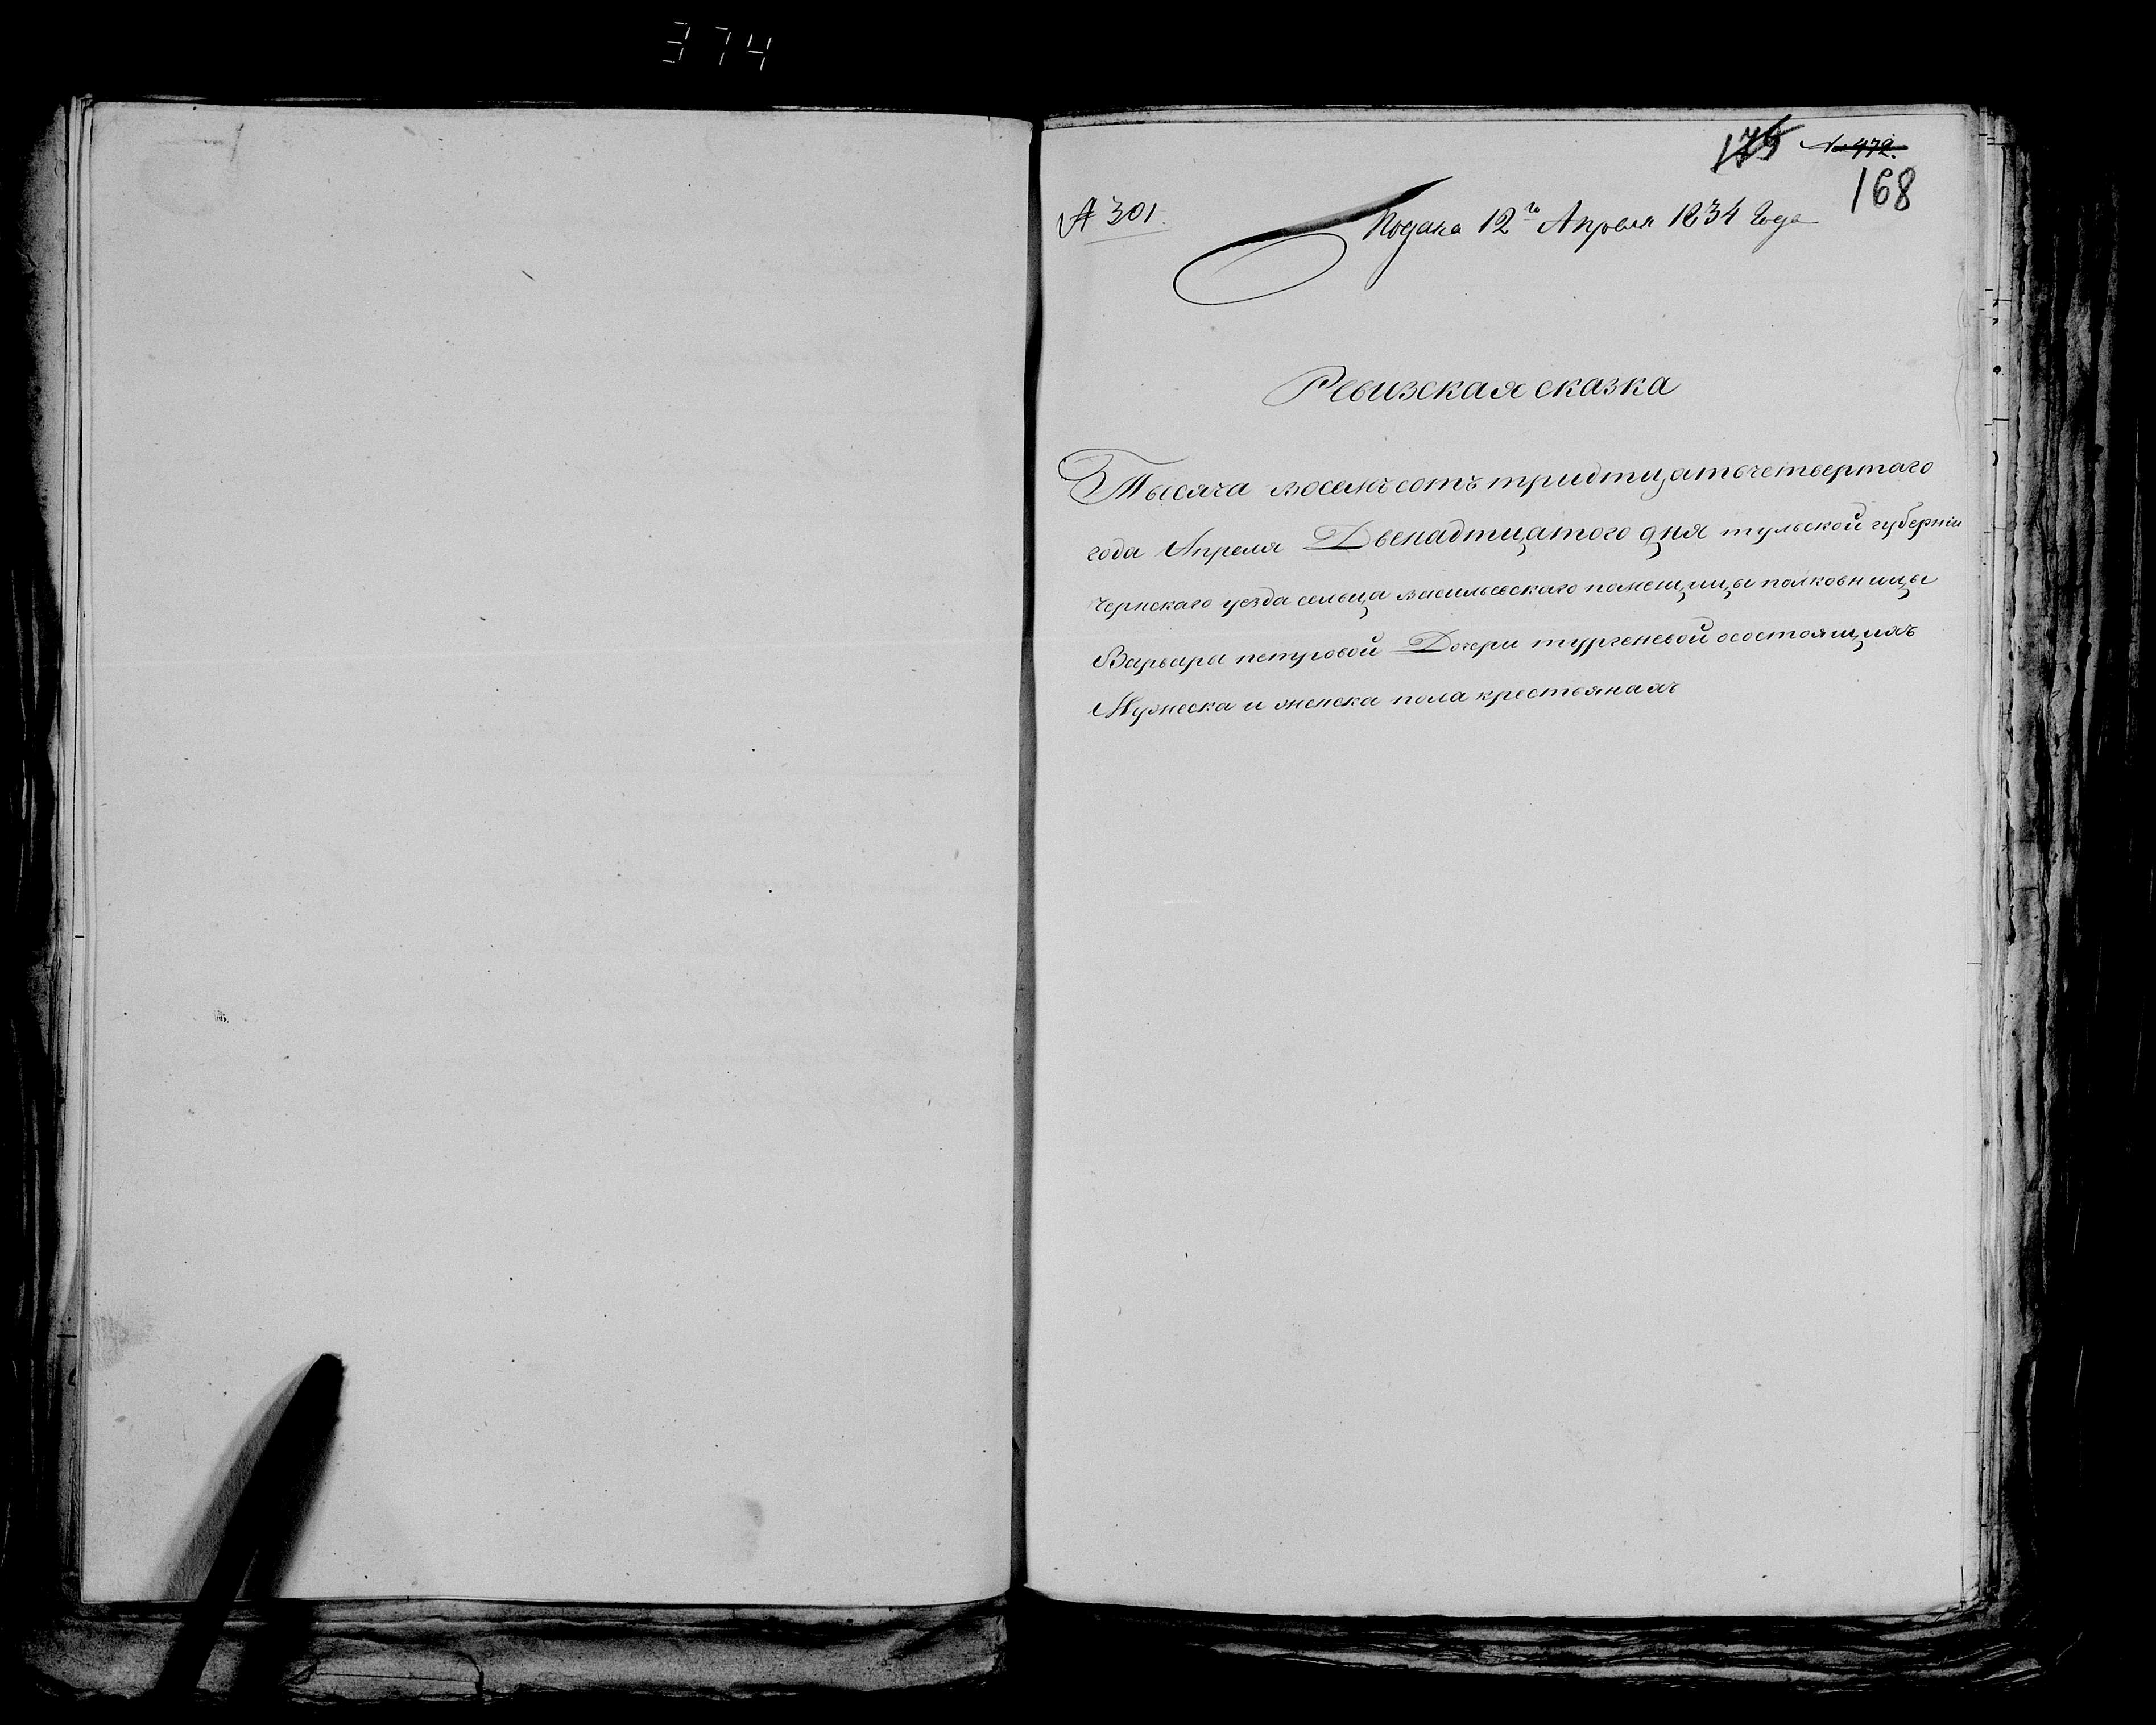 374
175 № 472.
168
№ 301.
Подана 12го Апреля 1834 Года
Ревизская сказка
Тысяча восемьсотъ тридтцатьчетвертаго
года Апреля Двенадтцатого дня тульской губернiи
чернскаго уезда сельца васильевскаго помещицы полковницы
Варвары петровой Дочери тургеневой осостоящихъ
Мужеска и женска пола крестьянахъ